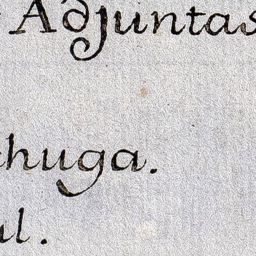 Adjuntas
huga.
ul.